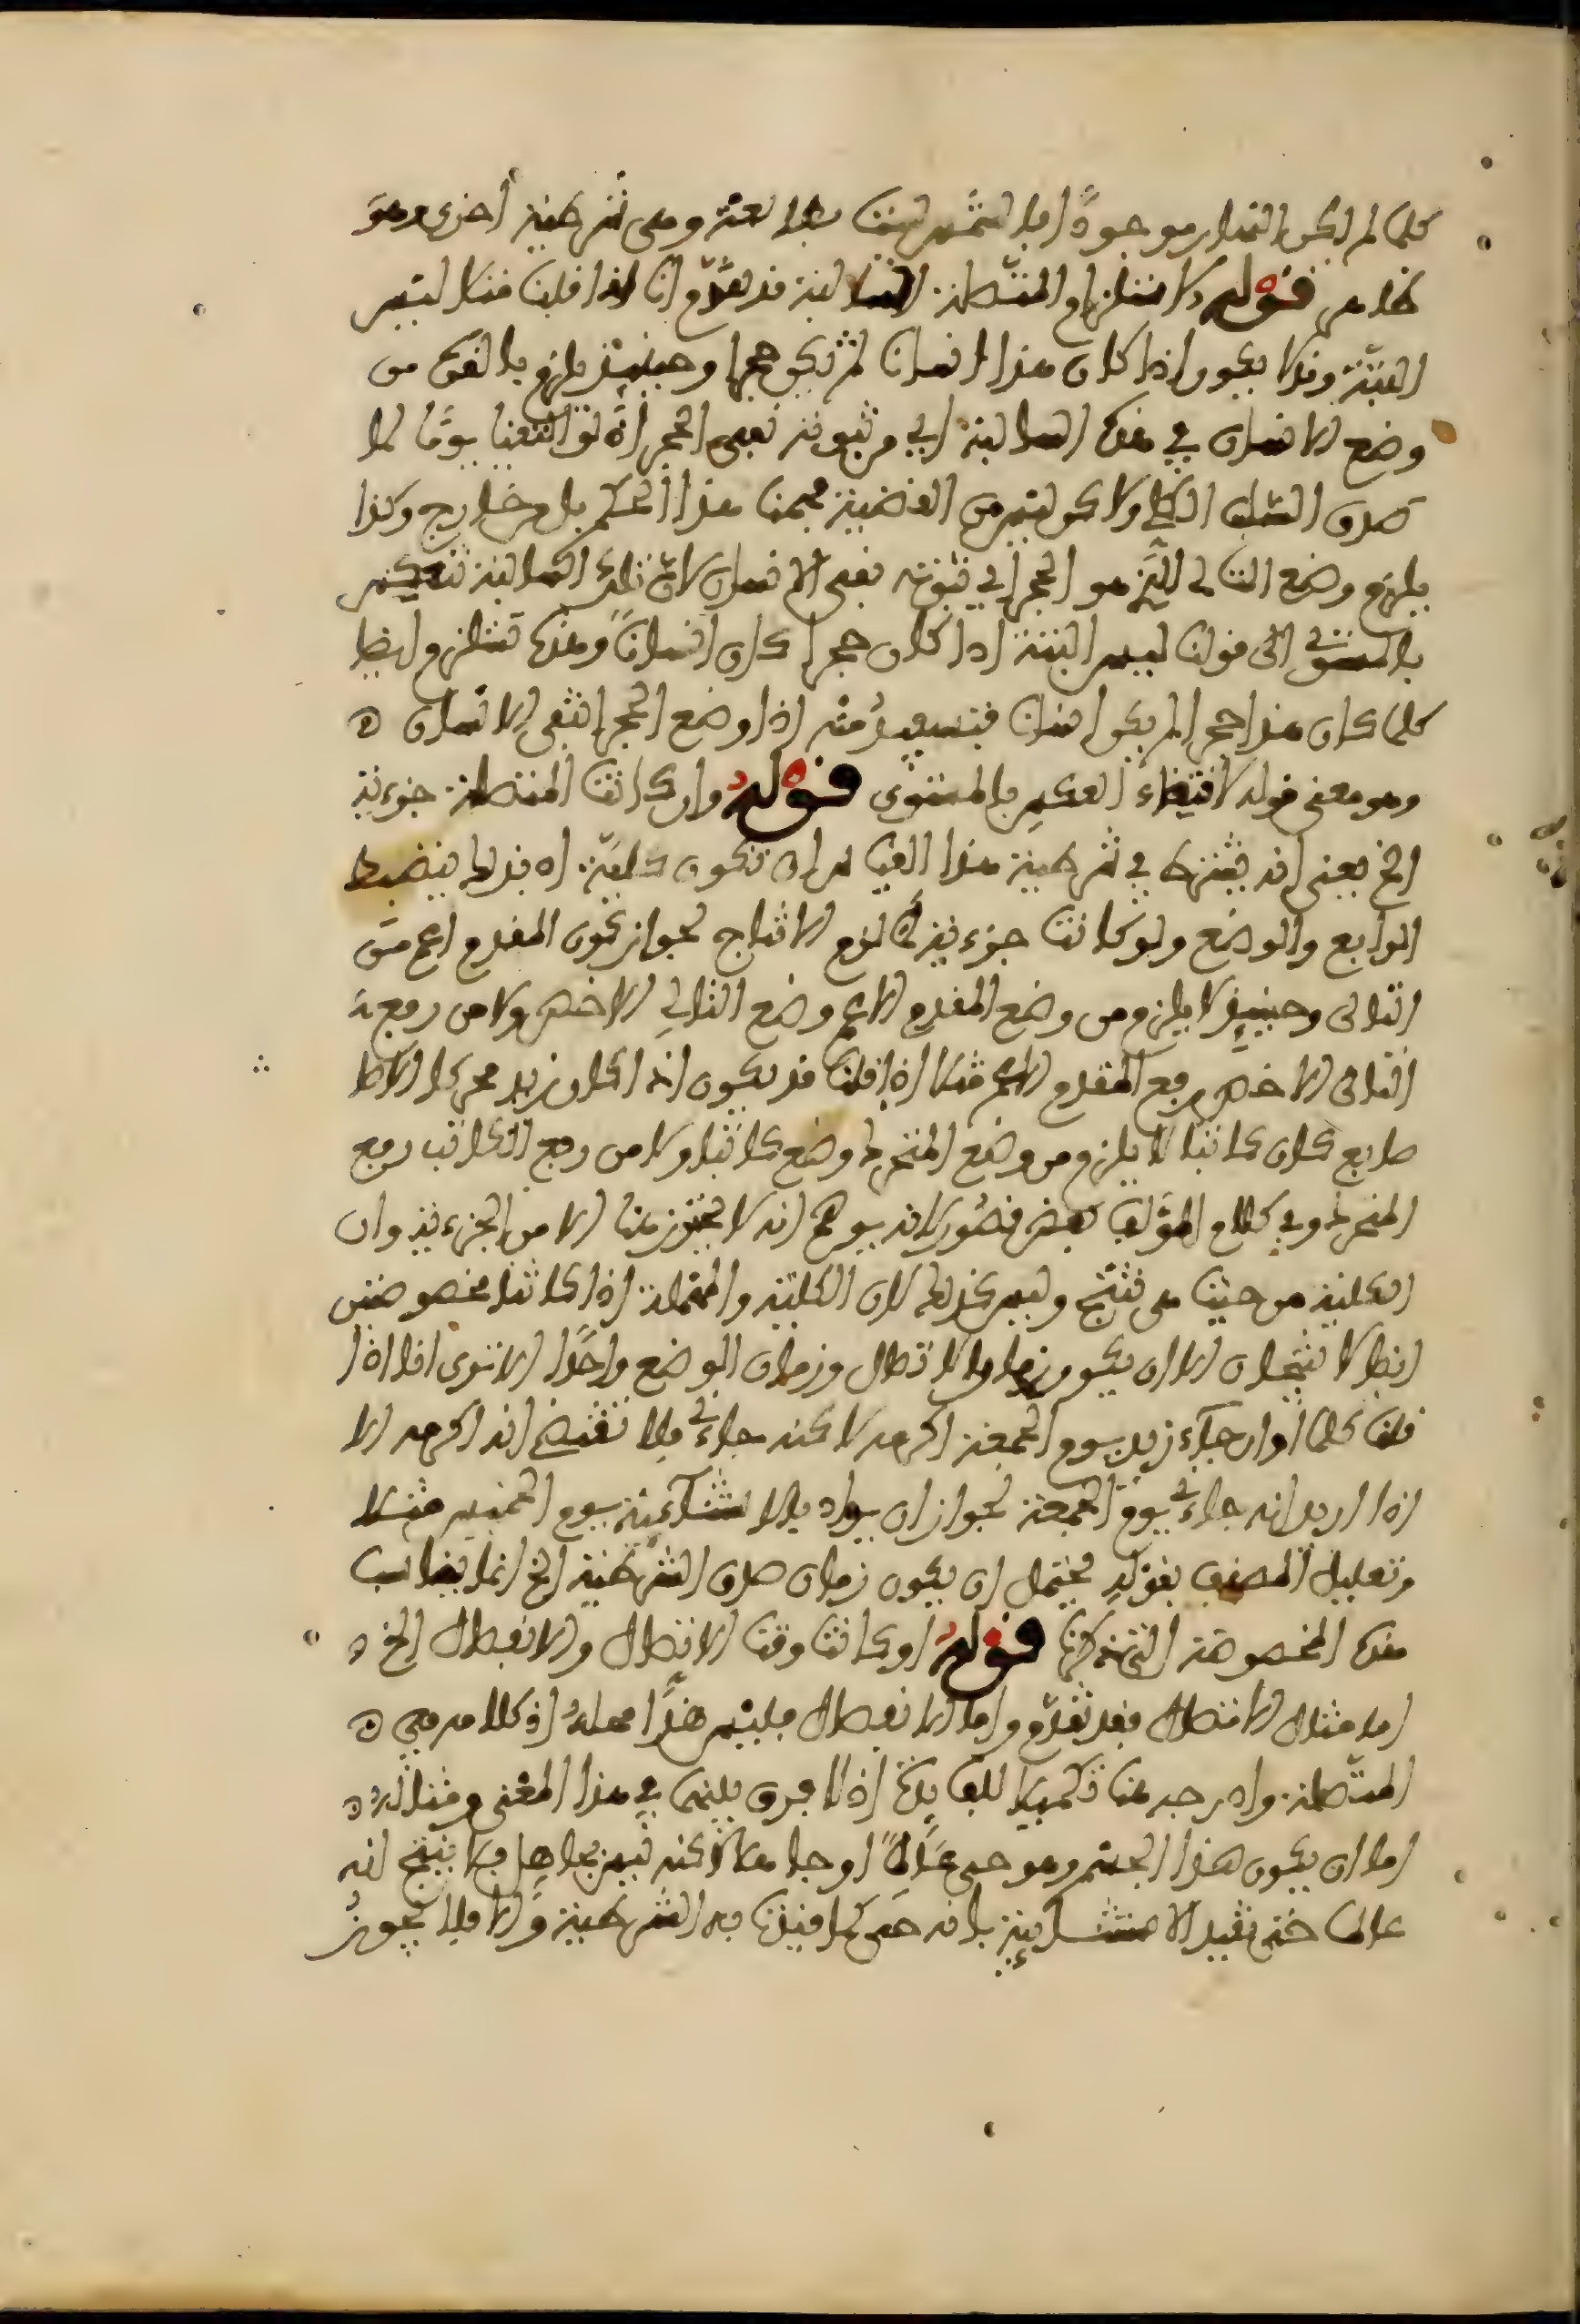 كلما لم يكن النهار موجودا فالشمس ليست بطالعة وهي شرطية أخرى وهو
ظاهر قوله لاستلزام المتصلة السالبة قد تقدم انا اذا قلنا مثلا ليس
البتة وقد لا يكون اذا كان هذا انسانا لم يكن حجرا وحينئذ يلزم بالفعل من
وضع الانسان في هذه السالبة اي من ثبوته نفي الحجر اذ لو اجتمعا يوما لما
صدق السلب الكلي ولاكن ليس من القضية فهمنا هذا الحكم بل من خارج وكذا
يلزم وضع التالي الذي هو الحجر اي ثبوته نفي الانسان لان تلك السالبة تنعكس
بالمستوي الى قولنا ليس البتة اذا كان حجرا كان انسانا وهذه تستلزم ايضا
كلما كان هذا حجرا لم يكن انسانا فتستفيد منه اذا وضع الحجر انتفى الانسان
وهو معنى قوله لاقتضاء العكس بالمستوي قوله وان كانت المتصلة جزءية
الخ يعني انه يشترط في شرطية هذا القياس ان تكون كلية اذ بذلك ينضبط
الرابع والوضع ولو كانت جزءية لما لزم الانتاج لجواز كون المقدم اعم من
التالي وحينئذ لا يلزم من وضع المقدم الاعم وضع التالي الاخص ولا من رفع
التالي الاخص رفع المقدم الاعم مثلا اذا قلنا قد يكون اذا كان زيد محركا الاصا
صابع كان كاتبا لا يلزم من وضع المتحرك وضع كاتبا ولا من رفع الكاتب رفع
المتحرك وفي كلام المؤلف بعض قصور لانه يوهم انه لا يحترز هنا الا من الجزءية وان
الكلية من حيث هي تنتج وليس كذلك لان الكلية والمهملة اذا كانتا مخصوصتين
ايضا لا ينتجان الا ان يكون زمان الاتصال وزمان الوضع واحدا الا ترى انا اذا
قلنا كلما او ان جاء زيد يوم الجمعة اكرمه لاكنه جاءني فلا تقتضي انه اكرمه الا
اذا اريد انه جاءني يوم الجمعة لجواز ان يراد بالاستثناءية يوم الخميس مثلا
وتعليل المصنف بقوله يحتمل ان يكون زمان صدق الشرطية الخ انما يناسب
هذه المخصوصة التي ذكرنا قوله او كانت وقت الاتصال والانفصال الخ
اما مثال الاتصال فقد تقدم واما الانفصال فليس هذا محله اذ كلامه في
المتصلة وادرجه هنا تكميلا للفايدة اذ لا فرق بينهما في هذا المعنى ومثاله
اما ان يكون هذا الجسم وهو حي عالما او جاهلا لاكنه ليس بجاهل فلا ينتج انه
عالم حتى تقيد الاستثناءية بانه حي كما قيدت به الشرطية والا فلا يجوز